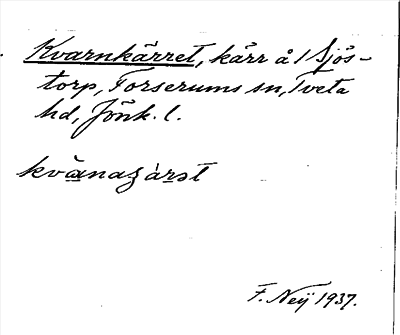 Kvarnkärret, kärr å 1 Sjös-
torp, Forserums sn, Tveta
hd, Jönk. l.
F. Neij 1937.